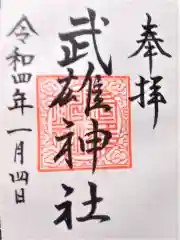 奉拝
武雄神社
令和四年一月四日